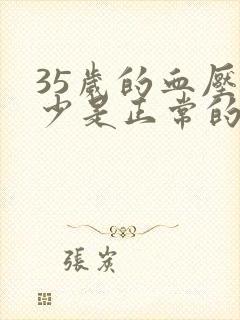 35歲的血壓
少是正常的
張炭